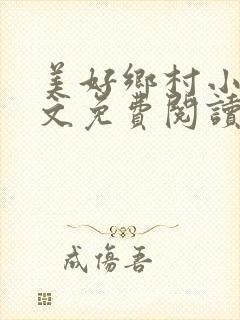 美好鄉村小
文免費閱讀
成傷吾